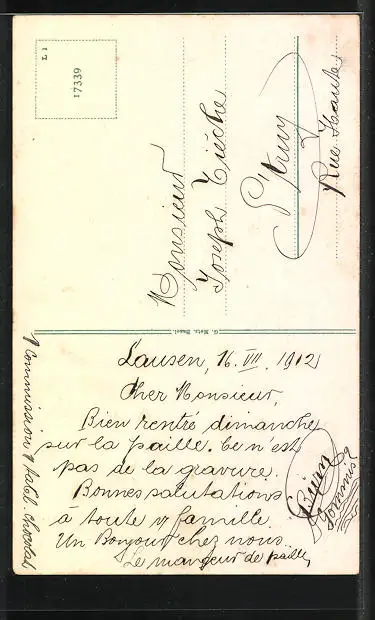 L 1
17339
Monsieur
Joseph Tièche
Rue Haute
G. Metz, Basel.
Lausen, 16. VII. 1912
Cher Monsieur,
Bien rentré dimanche
sur la paille. Ce n'est
pas de la gravure.
Bonnes salutations
à toute v famille.
Un Bonjour chez nous.
Le mangeur de paille,
1 Commission